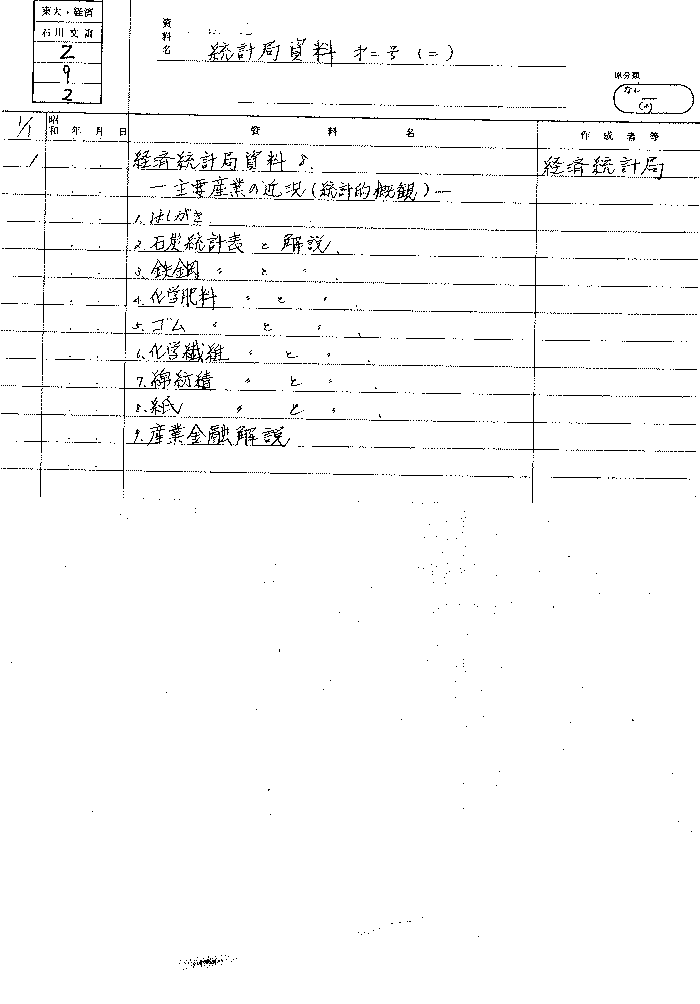 東大・経済
石川文書
Z
9
2
資料名 統計局資料 才二号 (二)
原分類
なし
1/1 昭和 年 月 日 資料名 作成者等
1 経済統計局資料 8. 経済統計局
―主要産業の近況(統計的概観)―
1. はしがき
2. 石炭統計表 と 解説.
3. 鉄鋼 〃 と 〃 .
4. 化学肥料 〃 と 〃
5. ゴム 〃 と 〃 .
6. 化学繊維 〃 と 〃 .
7. 綿紡績 〃 と 〃 .
8. 紙 〃 と 〃 .
9. 産業金融解説